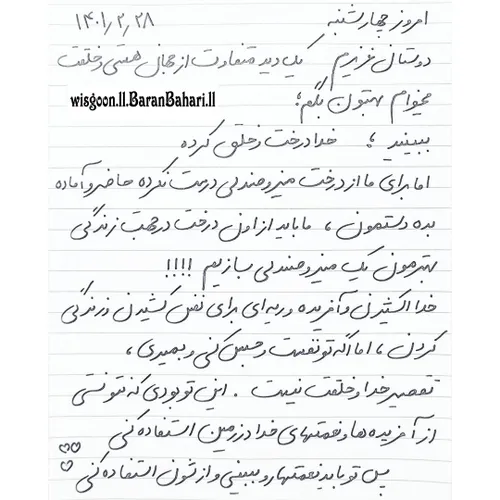 امروز چهارشنبه ۱۴۰۱٫۲٫۲۸
دوستان عزیزم یک دید متفاوت از جهان هستی و خلقت
میخوام بهتون بگم؛ wisgoon.ll.BaranBahari.ll
ببینید ؛ خدا درخت و خلق کرده
اما برای ما از درخت میز و صندلی درست نکرده حاضر و آماده
بده دستمون ، ما باید از اون درخت در جهت زندگی
بهترمون یک میز و صندلی بسازیم !!!!
خدا اکسیژن و آفریده و ریه ای برای نفس کشیدن و زندگی
کردن ، اما اگه تو نفست و حبس کنی و بمیری ،
تقصیر خدا و خلقت نیست . این تو بودی که نتونستی
از آفریده ها و نعمتهای خدا در زمین استفاده کنی
پس تو باید نعمتها رو ببینی و ازشون استفاده کنی